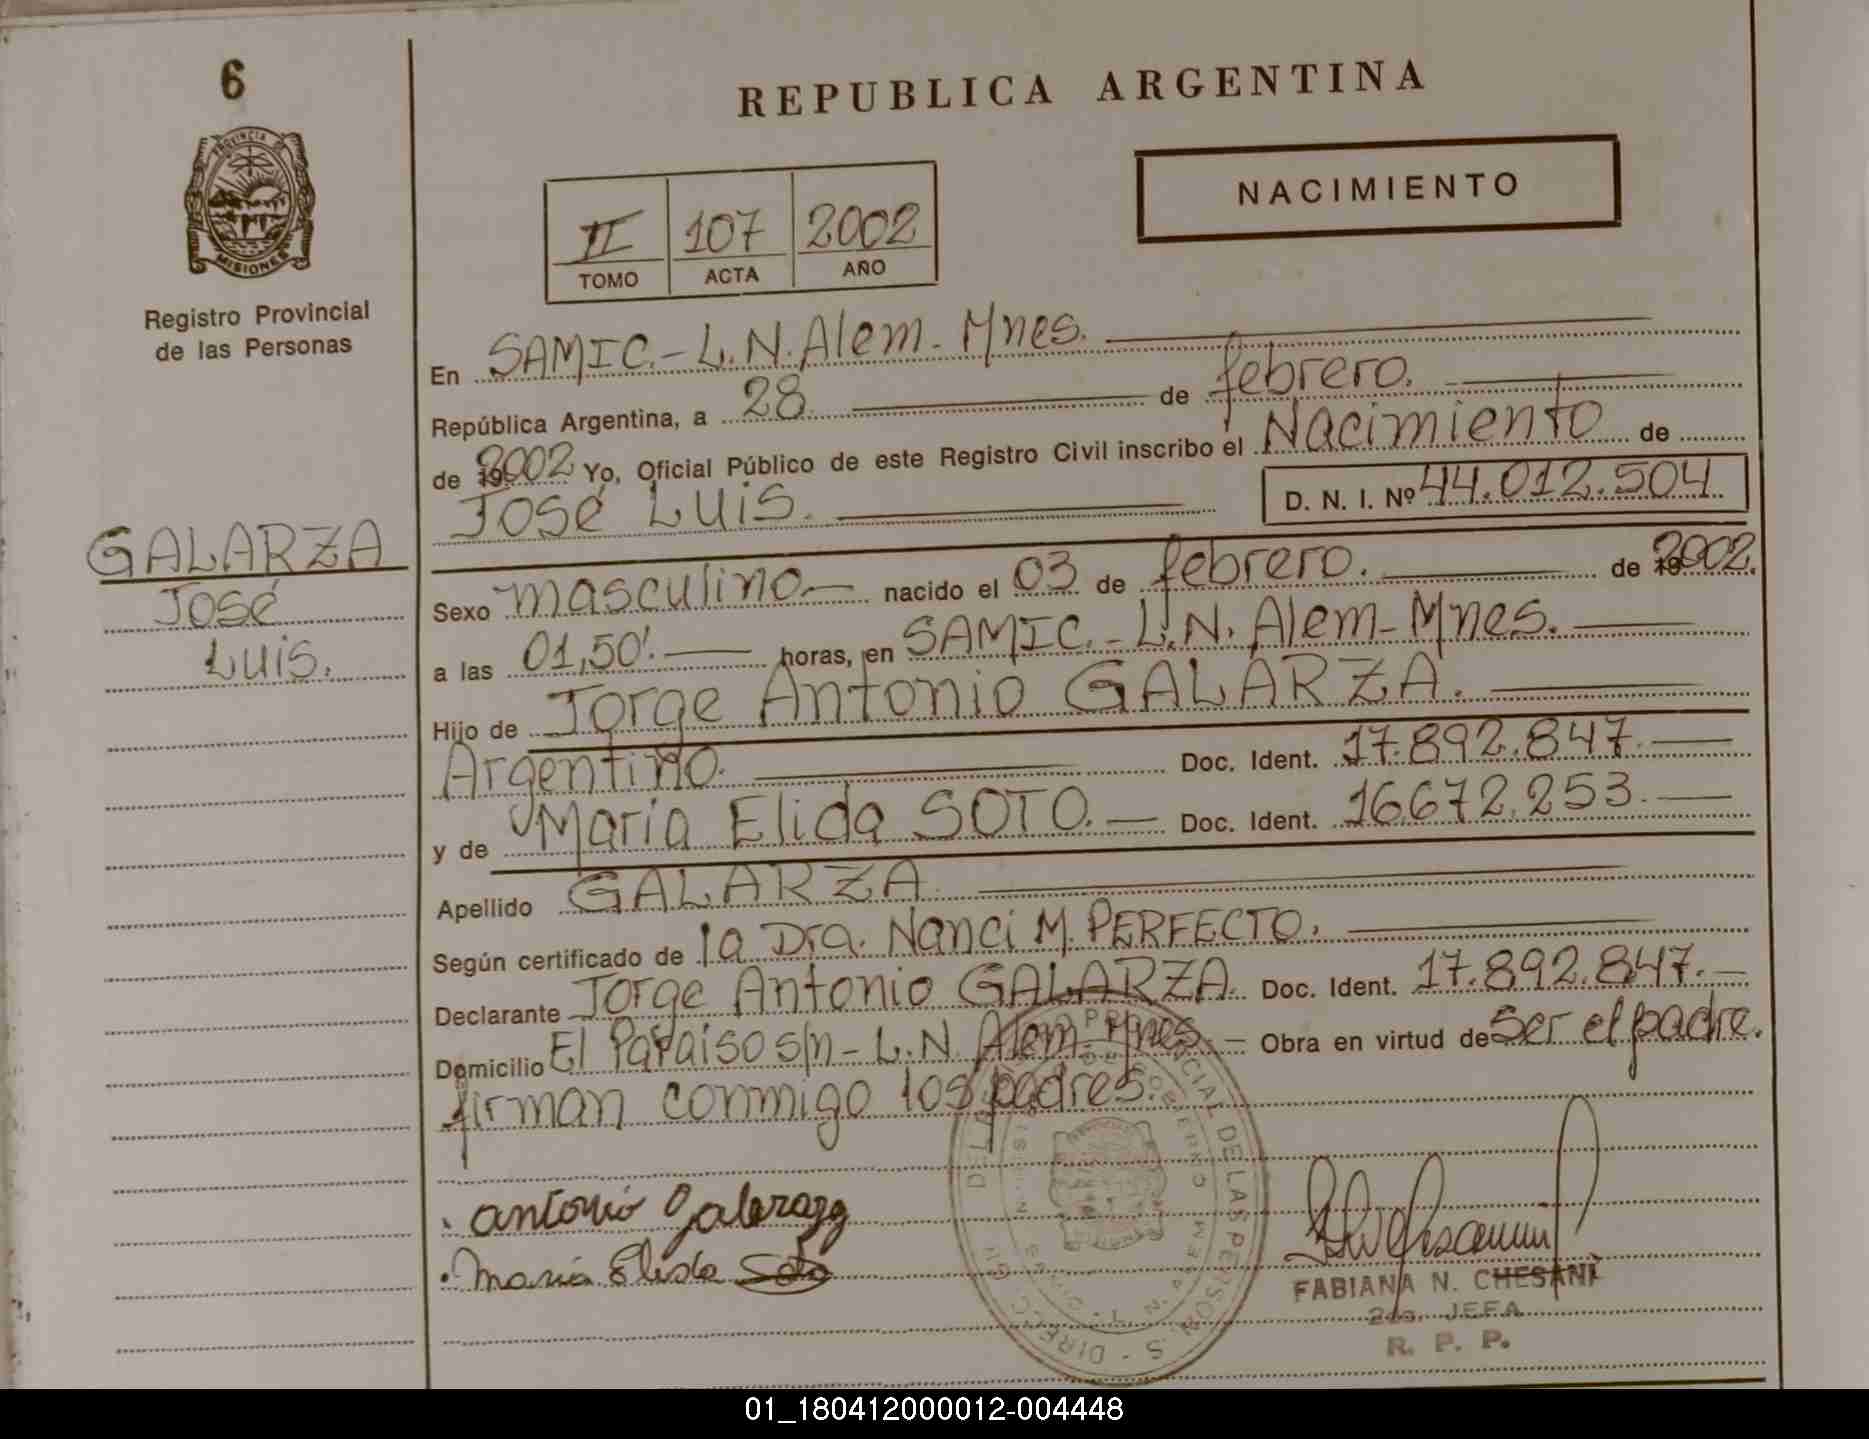 6
PROVINCIA DE
MISIONES
Registro Provincial
de las Personas
GALARZA
José
Luis.
REPUBLICA ARGENTINA
II 107 2002
TOMO ACTA AÑO
NACIMIENTO
En SAMIC.-L.N.Alem-Mnes.
República Argentina, a 28 de febrero.
de 2002 Yo, Oficial Público de este Registro Civil inscribo el Nacimiento de
José Luis. D. N. I. Nº 44.012.504
Sexo masculino- nacido el 03 de febrero. de 2002.
a las 01,50'. horas, en SAMIC.-L.N.Alem-Mnes.
Hijo de Jorge Antonio GALARZA.
Argentino. Doc. Ident. 17.892.847.
y de María Elida SOTO. Doc. Ident. 16672.253.
Apellido GALARZA
Según certificado de la Dra. Nanci M. PERFECTO.
Declarante Jorge Antonio GALARZA. Doc. Ident. 17.892.847.
Domicilio El Paraíso s/n-L.N. Alem-Mnes.- Obra en virtud de Ser el padre.
firman conmigo los padres.
antonio Galarza
María Elida Soto
DE LAS PERSONAS
FABIANA N. CHESANI
2da. JEFA
R. P. P.
01_180412000012-004448